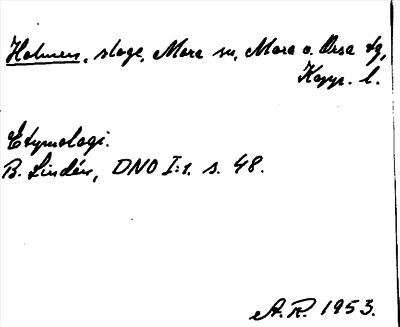 Holmen, skogs, Mora sn, Mora o. Orsa tg,
Kopp. l.
Etymologi.
B. Lindén, DNO I:1. s. 48.
A.R. 1953.